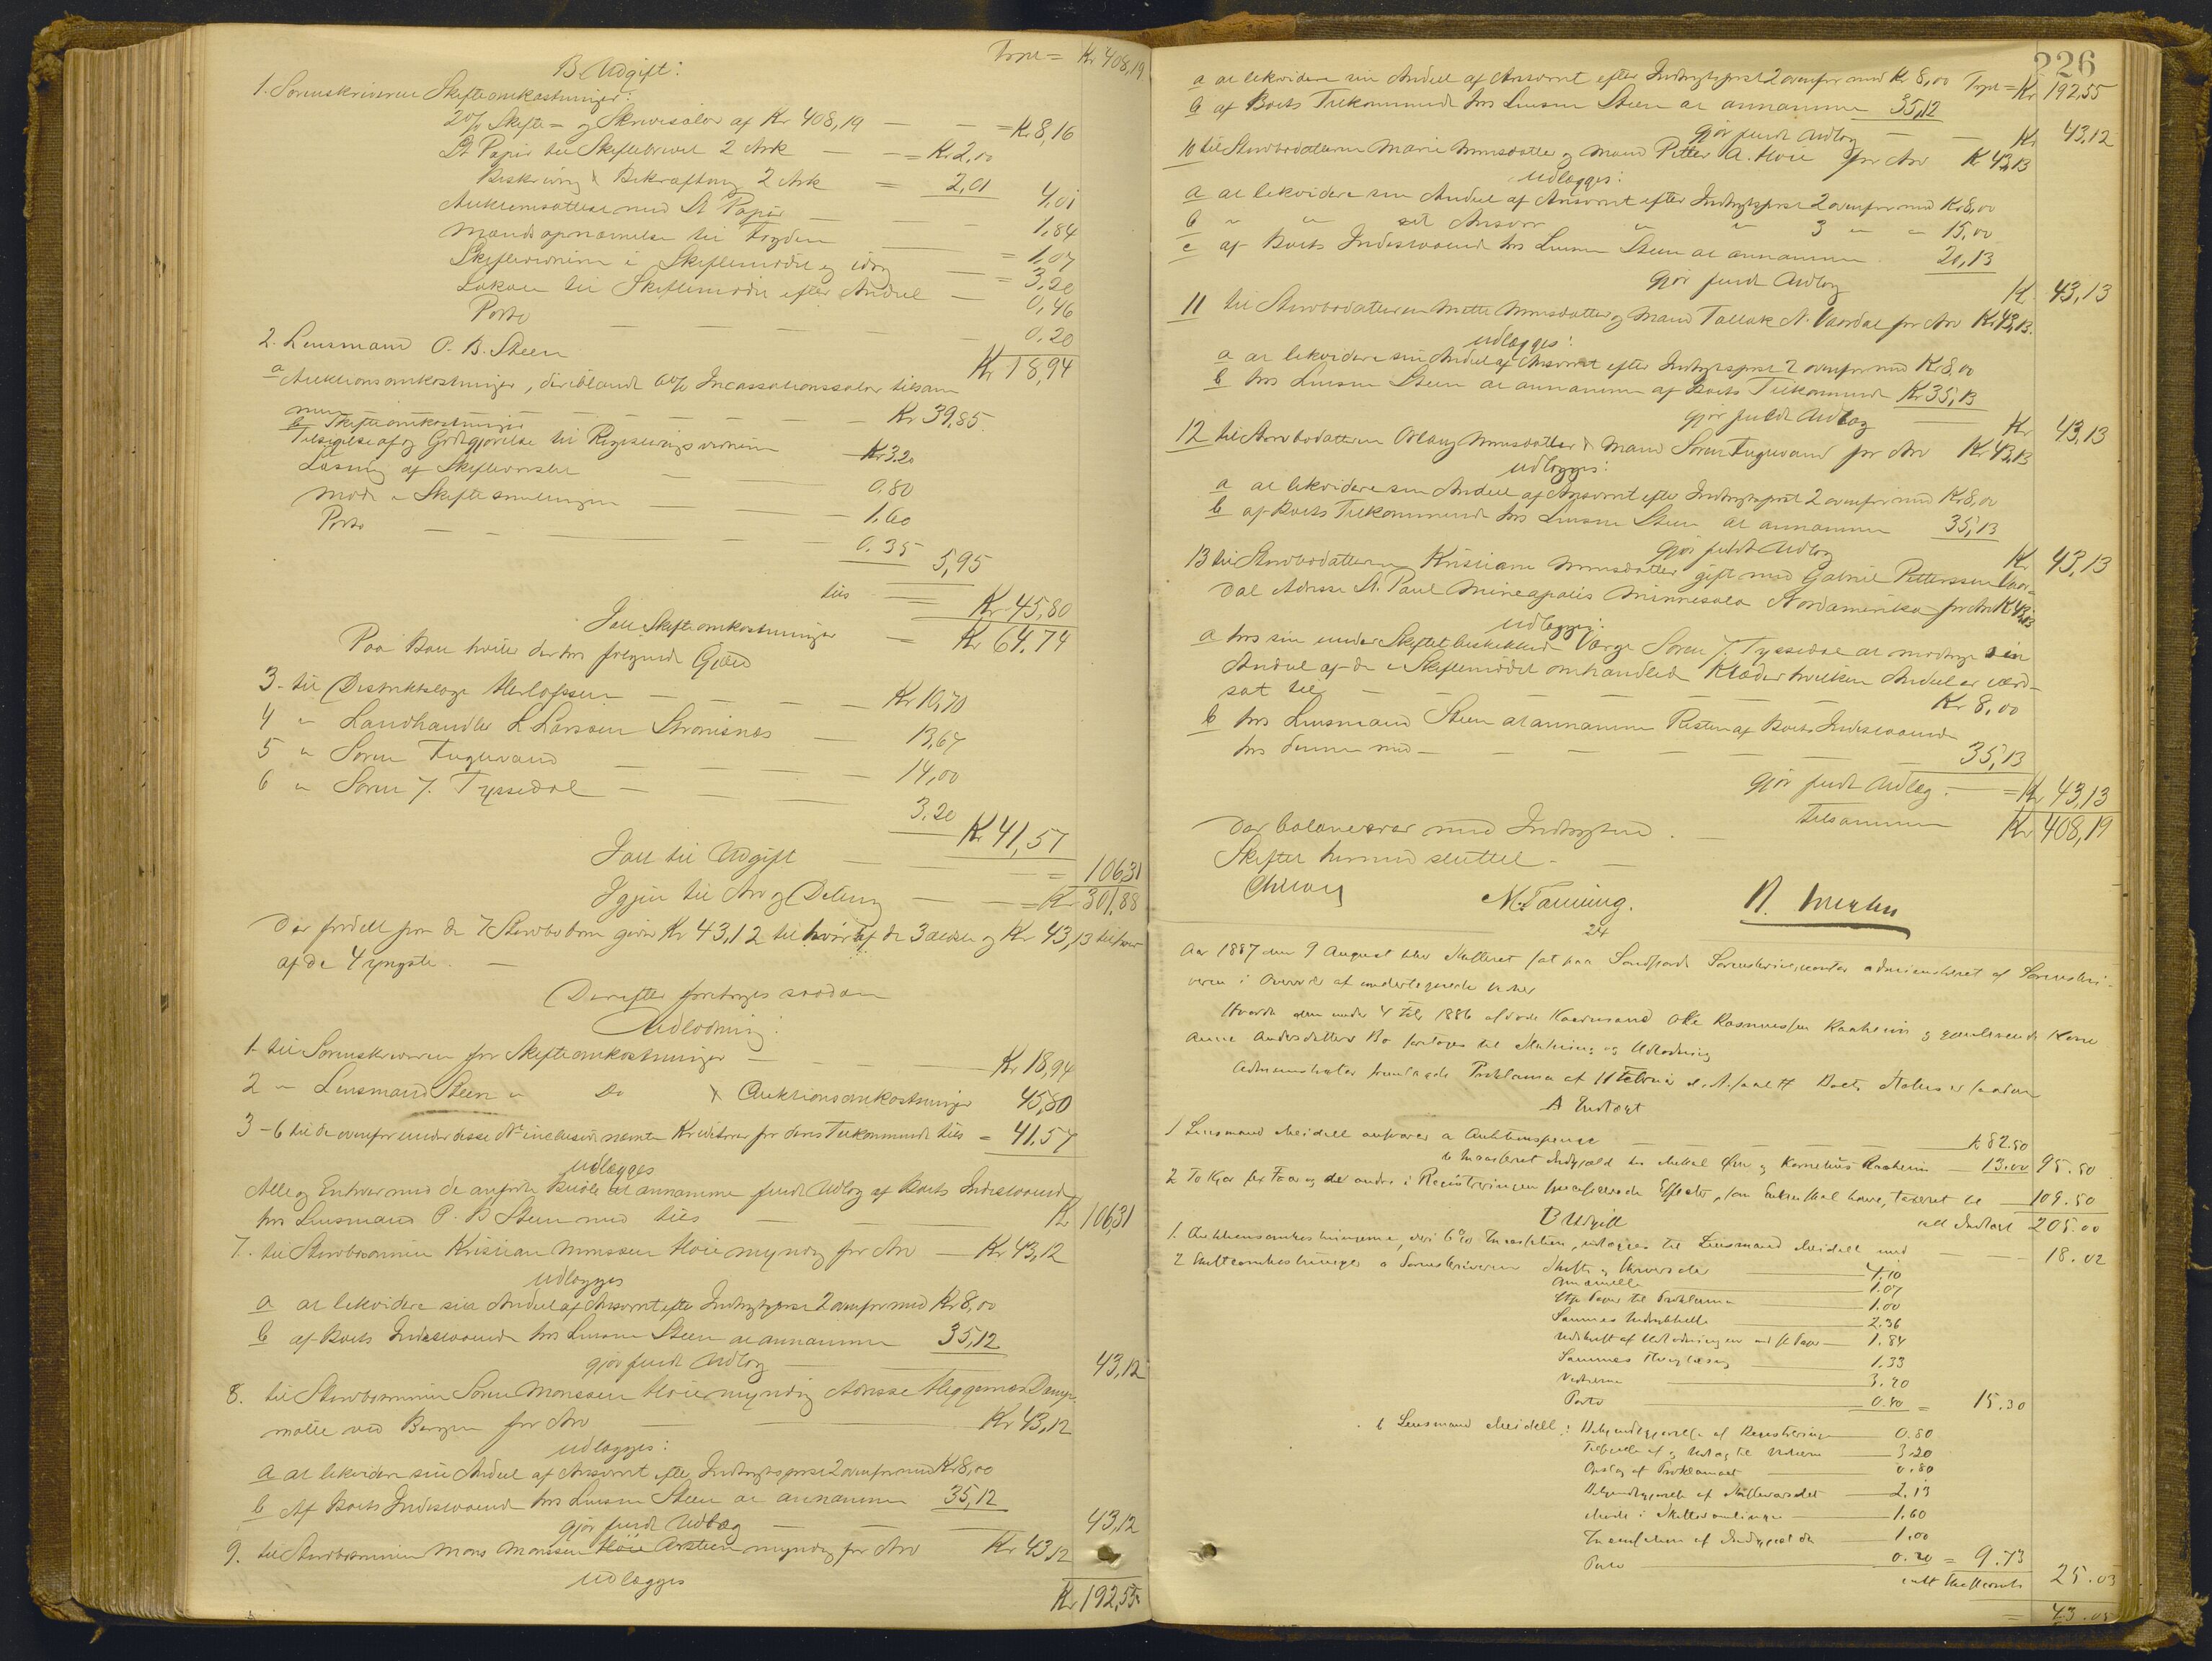 Trpt = Kr 408,19
B. Udgift:
1. Sorenskriveren Skifteomkostninger:
2% Skifte- og Skriversalær af Kr 408,19 — — = Kr 8,16
St Papir til Skiftebrevet 2 Ark — = Kr 2,00
Beskrivng & Bekræftning 2 Ark = 2,01 4,01
med St Papir — — 1,84
til Fogden — 1,07
Skiftevidnerne i Skiftemødet og idag — = 3,20
Lokale til Skiftemødet efter Andeel — 0,46
Porto — — — — 0,20
Kr 18,94
2. Lensmand P. B. Steen
a Auktionsomkostninger, deriblandt 6% Incassationssalær tilsam
men — — — — — — Kr 39,85.
b Skifteomkostninger
Tilsigelse af og Godtgjørelse til Registreringsvidnerne Kr 3.20
Læsning af Skiftevarslet — — 0.80
Møde i Skiftesamlingen — — 1.60
Porto — — — — 0.35 5,95
tils = Kr 45,80
Ialt Skifteomkostninger = Kr 64.74
Paa Boet hviler derhos følgende Gjæld
3. til Distriktslæge Herlofssen — — — Kr 10,70
4 " Landhandler L Larssen Stronisnæs — 13,67
5 " Søren Fuglevand — — — 14,00
6 " Søren J. Tyssedal — — — 3.20 Kr 41,57
Ialt til Udgift — — = 106,31
Igjen til Arv og Deling — — = Kr 301,88
Der fordelt paa de 7 Stervbobørn giver Kr 43,12 til hver af de 3 ældste og Kr 43,13 til hver
af de 4 yngste. —
Derefter foretoges saadan
Udlodning:
1. til Sorenskriveren for Skifteomkostninger — — — Kr 18,94
2 " Lensmand Steen " Do & Auktionsomkostninger 45,80
3-6 til de ovenfor under disse No inclusive nævnte Kreditorer for deres Tilkommende tils = 41.57
udlægges
Alle og Enhver med de anførte Beløb at annamme fuldt Udlæg af Boets Indestaaende
hos Lensmand P. B Steen med tils — — — Kr 106,31
7. til Stervbosønnen Kristian Monssen Høie myndig for Arv — Kr 43,12
udlægges
a at likvidere sin Andeel af Ansvaret efter Indtægtspost 2 ovenfor med Kr 8,00
b af Boets Indestaaende hos Lensm Steen at annamme 35,12
gjør fuldt Udlæg — — 43,12
8. til Stervbosønnen Søren Monssen Høie myndig Adresse Damp-
mølle ved Bergen for Arv — — Kr 43,12
udlægges:
a at likvidere sin Andeel af Ansvaret efter Indtægtspost 2 ovenfor med Kr 8,00
b Af Boets Indestaaende hos Lensm Steen at annamme 35,12
gjør fuldt Udlæg — — — 43,12
9. til Stervbosønnen Mons Monssen Høie myndig for Arv Kr 43,12
udlægges
Kr 192,55
226
Trpt = Kr 192,55
a at likvidere sin Andeel af Ansvaret efter Indtægtspost 2 ovenfor med Kr 8,00
b af Boets Tilkommende hos Lensm Steen at annamme 35,12
gjør fuldt Udlæg — — Kr 43,12
10 til Stervbodatteren Marie Monsdatter og Mand Petter A. Høie for Arv Kr 43,13
udlægges:
a at likvidere sin Andeel af Ansvaret efter Indtægtspost 2 ovenfor med Kr 8,00
b " " sit Ansvar " " 3 " " 15,00
c af Boets Indestaaende hos Lensm Steen at annamme 20,13
gjør fuldt Udlæg Kr 43,13
11 til Stervbodatteren Mette Monsdatter og Mand Tallak N. Vaardal for Arv Kr 43,13.
udlægges:
a at likvidere sin Andeel af Ansvaret efter Indtægtspost 2 ovenfor med Kr 8,00
b hos Lensm Steen at annamme af Boets Tilkommende Kr 35,13
gjør fuldt Udlæg — Kr 43,13
12 til Stervbodatteren Oblaug Monsdatter & Mand Søren Fuglevand for Arv Kr 43,13
udlægges:
a at likvidere sin Andeel af Ansvaret efter Indtægtspost 2 ovenfor med Kr 8,00
b af Boets Tilkommende hos Lensm Steen at annamme 35,13
gjør fuldt Udlæg Kr 43,13
13 til Stervbodatteren Kristiane Monsdatter gift med Gabriel Petterssen Vaar-
dal Adresse St. Paul Mineapolis Minnesota Nordamerika for Arv Kr 43,13
udlægges:
a hos sin under Skiftet beskikkede Værge Søren J. Tyssedal at modtage sin
Andeel af de i Skiftemødet omhandlede Klæder hvilken Andeel er værd-
sat til — — — — — Kr 8,00
b hos Lensmand Steen at annamme Resten af Boets Indestaaende
hos denne med — — — — — 35,13
gjør fuldt Udlæg. — = Kr 43,13
tilsammen Kr 408,19
Der balancerer med Indtægten. —
Skiftet hermed sluttet. —
M. Tanning.
24
Aar 1887 den 9 August blev Skifteret sat paa Søndfjords Sorenskriverkontor administreret af Sorenskri-
veren i Overvær af undertegnede Vidner
Hvorda den under 4 Febr 1886 afdøde Kaarmand Ole Rasmussen Raaheim og gjenlevende Kone
Anne Andersdatters Bo foretoges til Slutning og Udlodning
Administrator fremlagde Proklama af 11 Februar Boets Status er saadan
A Indtægt
1 Lensmand Meidell ansvarer a Auktionspenge — — — — Kr 82.50
b Indgjæld hos Mikkel og Kornelius Raaheim — 13.00 95.50
2 To Kjør Faar og de andre i Registreringen specificerede Effecter, som Enken skal have, taxeret til 109.50
B Udgift ialt Indtægt 205.00
1. Auktionsomkostningerne, deri 6% Incassation, udlægges til Lensmand Meidell med — — 18.02
2 Skifteomkostninger a Sorenskriveren Skifte og Skriversalær — 4.10
— 1.07
Stp Papir til Proklama — 1.00
Sammes Indrykkelse — 2.36
Udskrift af Udlodningen med St Papir — 1.84
Sammes Thinglæsning — 1.33
Vidnerne — 3.20
Porto — 0.40 = 15.30
b Lensmand Meidell: Bekjendtgjørelse af Registreringen — 0.80
Tilsigelse af og Udlæg til Vidnerne — 3.20
Opslag af Proklamaet — 0.80
Bekjendtgjørelse af Skiftevarslet — 2.13
Møde i Skiftesamlingen — 1.60
Incassation af Indgjælden — 1.00
Porto 0.20 = 9.73
ialt Skifteomk 25.03
= 43.05